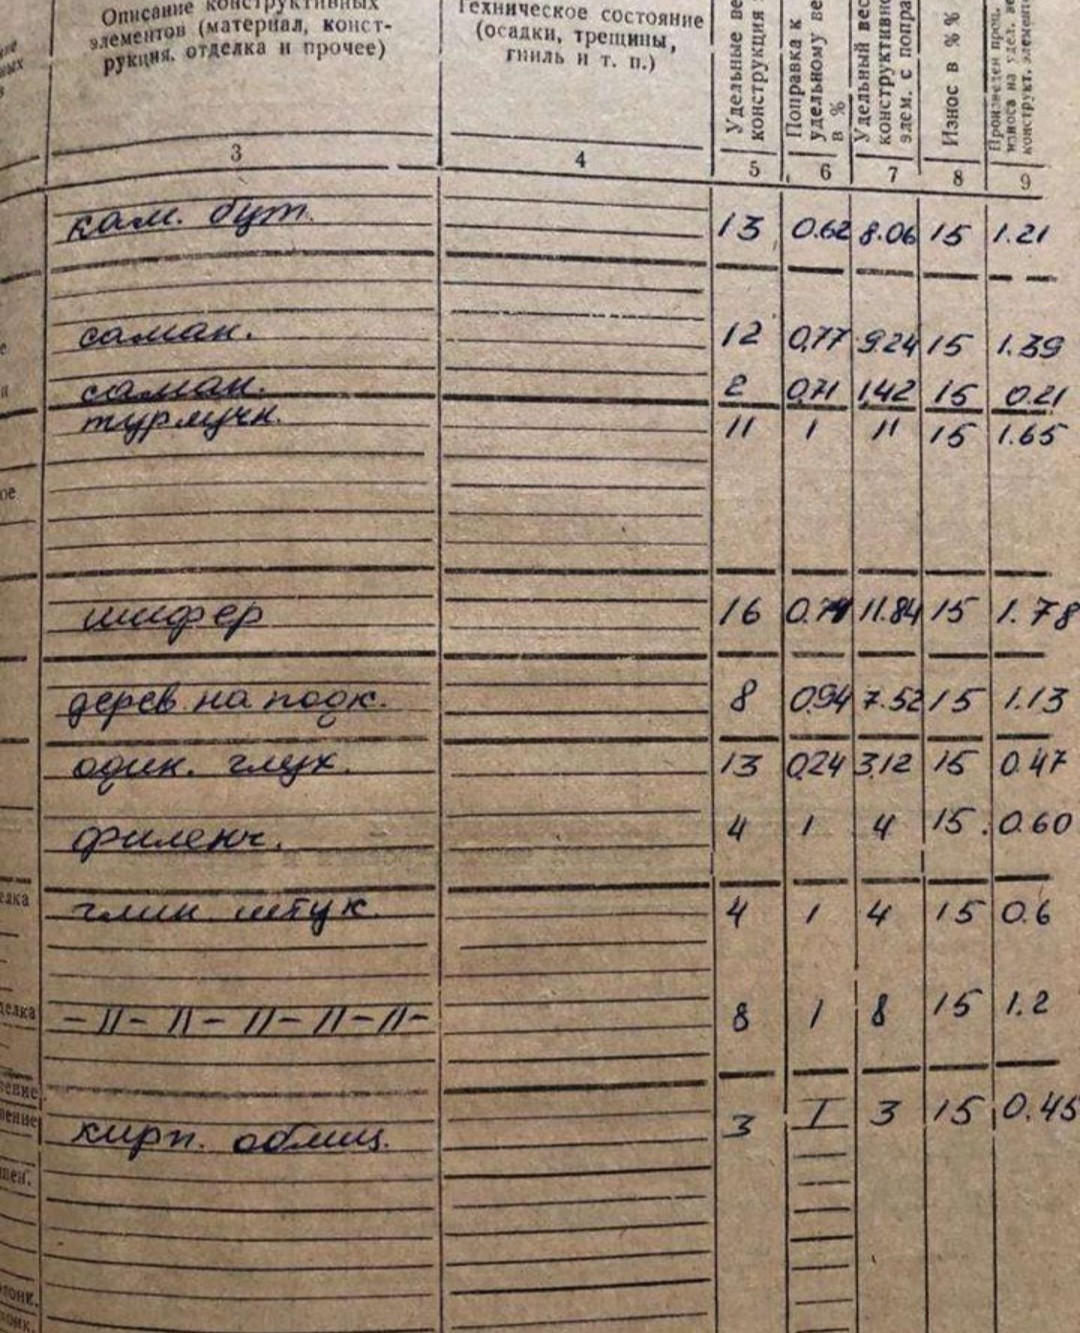 Описание конструктивных
элементов (материал, конст-
рукция, отделка и прочее)
Техническое состояние
(осадки, трещины,
гниль и т. п.)
Удельные ве
конструкция
Поправка к
удельному ве
в %
Удельный вес
конструктивно
элем. с попра
Износ в % %
Произведен проц.
износа на удел. ве
конструкт. элемент
3 4 5 6 7 8 9
кам. бут. 13 0.62 8.06 15 1.21
саман. 12 0,77 9.24 15 1.39
саман. 2 0,71 1,42 15 0.21
турлучн. 11 1 11 15 1.65
ое
шифер 16 0.74 11.84 15 1.78
дерев на подк. 8 0.94 7.52 15 1.13
один. глух. 13 0,24 3,12 15 0.47
филенч. 4 1 4 15 0.60
елка глин штук. 4 1 4 15 0.6
делка – 11 – 11 – 11 – 11 – 11 – 8 1 8 15 1.2
кирп. облиц. 3 1 3 15 0.45